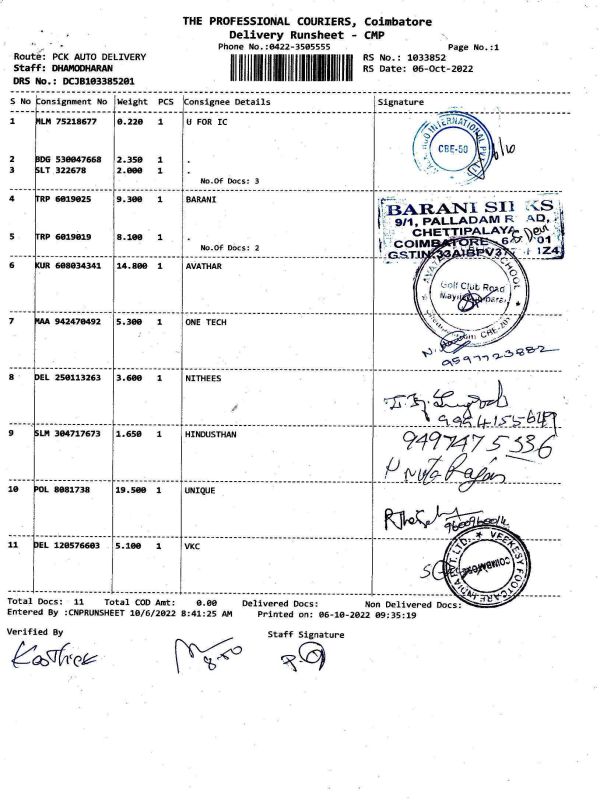 THE PROFESSIONAL COURIERS, Coimbatore
Delivery Runsheet - CMP
Phone No.:0422-3505555
Page No.:1
Route: PCK AUTO DELIVERY
RS No.: 1033852
Staff: DHAMODHARAN
RS Date: 06-Oct-2022
DRS No.: DCJB103385201
S No Consignment No Weight PCS Consignee Details Signature
1 MLM 75218677 0.220 1 U FOR IC
INTERNATIONAL
CBE-50
6/10
2 BDG 530047668 2.350 1 .
3 SLT 322678 2.000 1 .
No.Of Docs: 3
4 TRP 6019025 9.300 1 BARANI
BARANI SILKS
9/1, PALLADAM ROAD,
CHETTIPALAYA
COIMBATORE
5 TRP 6019019 8.100 1 .
No.Of Docs: 2
6 KUR 608034341 14.800 1 AVATHAR
SCHOOL
Golf Club Road
7 MAA 942470492 5.300 1 ONE TECH
9597723882
8 DEL 250113263 3.600 1 NITHEES
9 SLM 304717673 1.650 1 HINDUSTHAN
9497475336
10 POL 8081738 19.500 1 UNIQUE
11 DEL 120576603 5.100 1 VKC
VEEKESY FOOTCARE INDIA PVT. LTD.
COIMBATORE
Total Docs: 11 Total COD Amt: 0.00 Delivered Docs: Non Delivered Docs:
Entered By :CNPRUNSHEET 10/6/2022 8:41:25 AM Printed on: 06-10-2022 09:35:19
Verified By
Staff Signature
Karthick
8:50